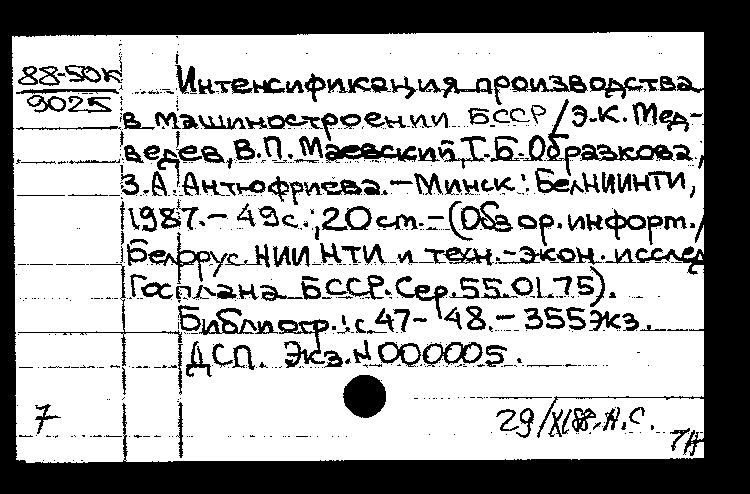 88-50к
9025
Интенсификация производства
в машиностроении БССР / Э.К. Мед-
ведев, В.П. Маевский, Т.Б. Образкова,
З.А. Антюфриева. — Минск : БелНИИНТИ,
1987. — 49 с. ; 20 см. — (Обзор. информ. /
Белорус. НИИ НТИ и техн.-экон. исслед
Госплана БССР. Сер. 55.01.75).
Библиогр.: с. 47-48. — 355 экз.
ДСП. Экз. N 000005.
7
29/XI 88. Н.С.